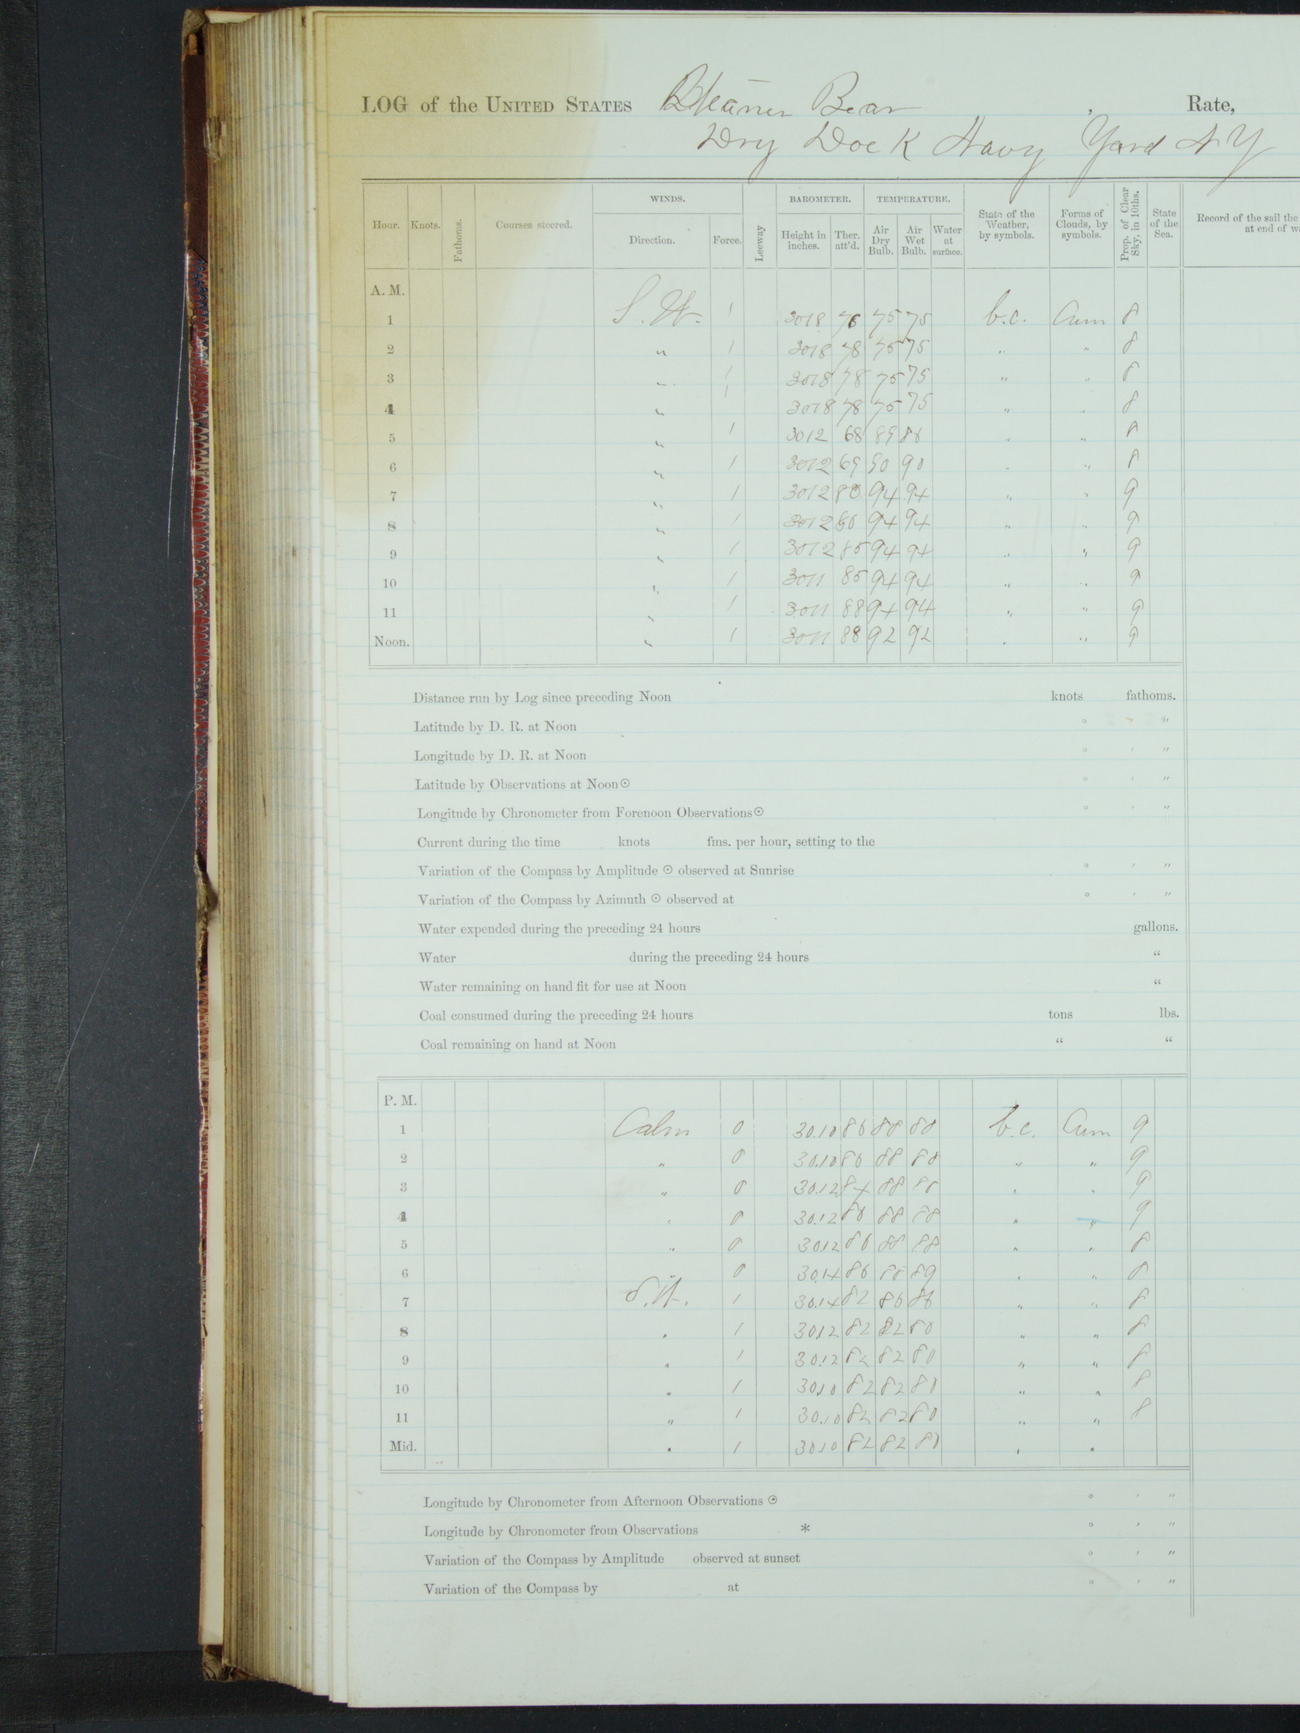 LOG of the UNITED STATES Steamer Bear , Rate,
Dry Dock Navy Yard N Y
Hour. Knots. Fathoms. Courses steered. WINDS. Direction. Force. Leeway BAROMETER. Height in inches. Ther. att'd. TEMPERATURE. Air Dry Bulb. Air Wet Bulb. Water at surface. State of the Weather, by symbols. Forms of Clouds, by symbols. Prop. of Clear Sky, in 10ths. State of the Sea. Record of the sail the at end of wa
A. M.
1 S. W. 1 3018 76 75 75 b.c. Cum 8
2 " 1 3018 78 75 75 " " 8
3 " 1 3018 78 75 75 " " 8
4 " 1 3018 78 75 75 " " 8
5 " 1 3012 68 89 88 " " 8
6 " 1 3012 69 90 90 " " 8
7 " 1 3012 80 94 94 " " 9
8 " 1 3012 80 94 94 " " 9
9 " 1 3012 85 94 94 " " 9
10 " 1 3011 85 94 94 " " 9
11 " 1 3011 88 94 94 " " 9
Noon. " 1 3011 88 92 92 " " 9
Distance run by Log since preceding Noon knots fathoms.
Latitude by D. R. at Noon ° ' "
Longitude by D. R. at Noon ° ' "
Latitude by Observations at Noon ☉ ° ' "
Longitude by Chronometer from Forenoon Observations ☉ ° ' "
Current during the time knots fms. per hour, setting to the
Variation of the Compass by Amplitude ☉ observed at Sunrise ° ' "
Variation of the Compass by Azimuth ☉ observed at ° ' "
Water expended during the preceding 24 hours gallons.
Water during the preceding 24 hours "
Water remaining on hand fit for use at Noon "
Coal consumed during the preceding 24 hours tons lbs.
Coal remaining on hand at Noon " "
P. M.
1 Calm 0 30.10 86 88 88 b.c. Cum 9
2 " 0 30.10 86 88 88 " " 9
3 " 0 30.12 84 88 88 " " 9
4 " 0 30.12 86 88 88 " " 9
5 " 0 3012 86 88 88 " " 8
6 " 0 30.14 86 88 89 " " 8
7 S.W. 1 30.14 82 86 86 " " 8
8 " 1 3012 82 82 80 " " 8
9 " 1 30.12 82 82 80 " " 8
10 " 1 3010 82 82 80 " " 8
11 " 1 30.10 82 82 80 " " 8
Mid. " 1 3010 82 82 80 " "
Longitude by Chronometer from Afternoon Observations ☉ ° ' "
Longitude by Chronometer from Observations * ° ' "
Variation of the Compass by Amplitude observed at sunset ° ' "
Variation of the Compass by at ° ' "